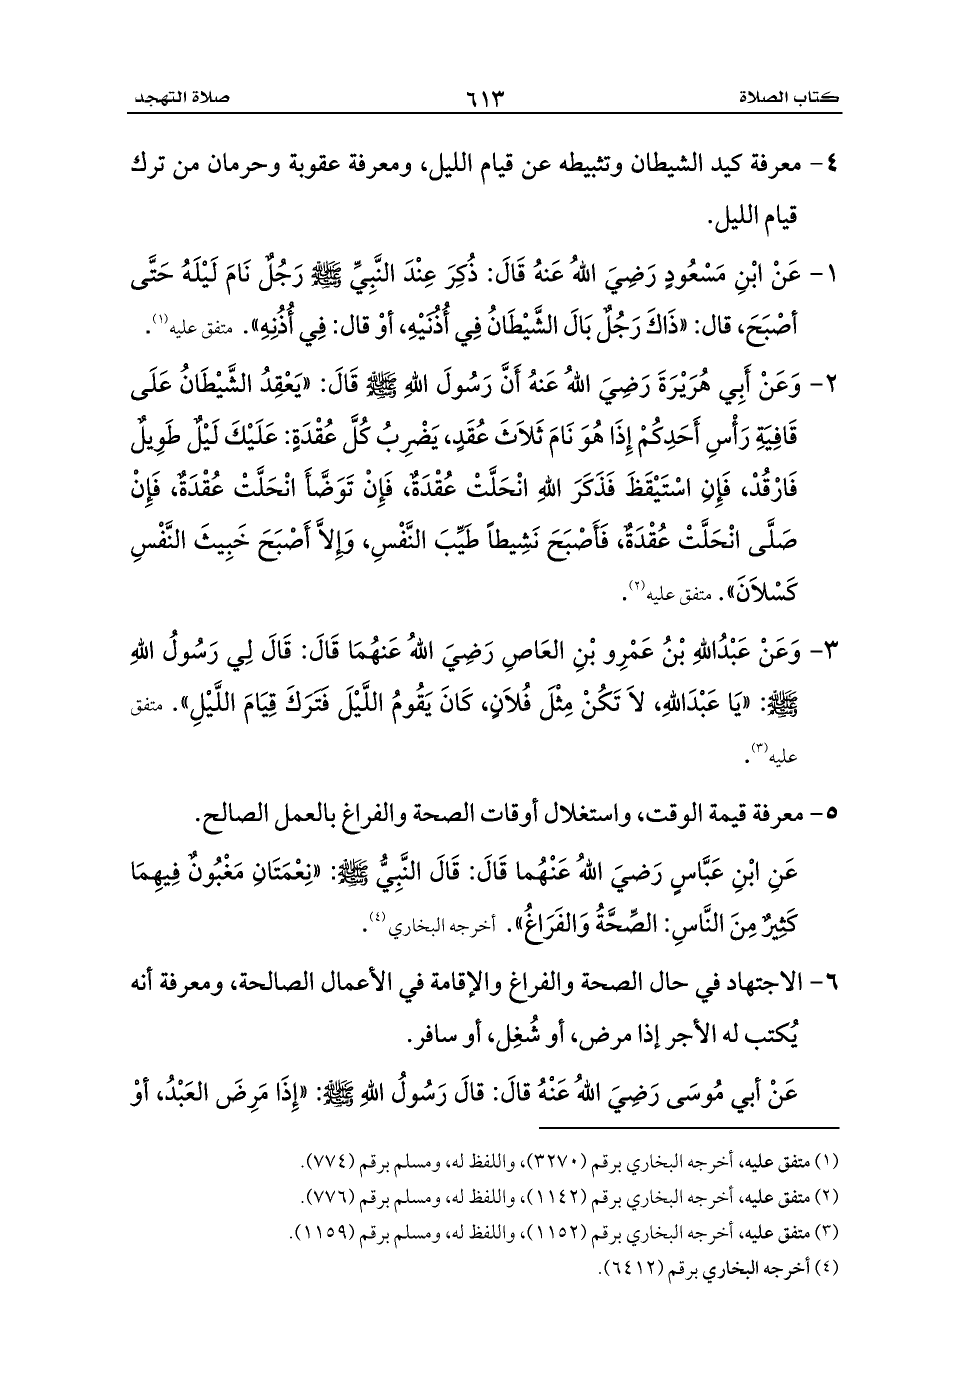 كتاب الصلاة ٦١٣ صلاة التهجد
٤- معرفة كيد الشيطان وتثبيطه عن قيام الليل، ومعرفة عقوبة وحرمان من ترك
قيام الليل.
١- عَنْ ابْنِ مَسْعُودٍ رَضِيَ اللهُ عَنهُ قَالَ: ذُكِرَ عِنْدَ النَّبِيِّ ﷺ رَجُلٌ نَامَ لَيْلَهُ حَتَّى
أصْبَحَ، قال: «ذَاكَ رَجُلٌ بَالَ الشَّيْطَانُ فِي أُذُنَيْهِ، أوْ قال: فِي أُذُنِهِ». متفق عليه(١).
٢- وَعَنْ أَبِي هُرَيْرَةَ رَضِيَ اللهُ عَنهُ أَنَّ رَسُولَ اللهِ ﷺ قَالَ: «يَعْقِدُ الشَّيْطَانُ عَلَى
قَافِيَةِ رَأْسِ أَحَدِكُمْ إِذَا هُوَ نَامَ ثَلاَثَ عُقَدٍ، يَضْرِبُ كُلَّ عُقْدَةٍ: عَلَيْكَ لَيْلٌ طَوِيلٌ
فَارْقُدْ، فَإِنِ اسْتَيْقَظَ فَذَكَرَ اللهِ انْحَلَّتْ عُقْدَةٌ، فَإِنْ تَوَضَّأَ انْحَلَّتْ عُقْدَةٌ، فَإِنْ
صَلَّى انْحَلَّتْ عُقْدَةٌ، فَأَصْبَحَ نَشِيطاً طَيِّبَ النَّفْسِ، وَإِلاَّ أَصْبَحَ خَبِيثَ النَّفْسِ
كَسْلاَنَ». متفق عليه(٢).
٣- وَعَنْ عَبْدُاللهِ بْنُ عَمْرِو بْنِ العَاصِ رَضِيَ اللهُ عَنهُمَا قَالَ: قَالَ لِي رَسُولُ اللهِ
ﷺ: «يَا عَبْدَاللهِ، لاَ تَكُنْ مِثْلَ فُلاَنٍ، كَانَ يَقُومُ اللَّيْلَ فَتَرَكَ قِيَامَ اللَّيْلِ». متفق
عليه(٣).
٥- معرفة قيمة الوقت، واستغلال أوقات الصحة والفراغ بالعمل الصالح.
عَنِ ابْنِ عَبَّاسٍ رَضيَ اللهُ عَنْهُما قَالَ: قَالَ النَّبِيُّ ﷺ: «نِعْمَتَانِ مَغْبُونٌ فِيهِمَا
كَثِيرٌ مِنَ النَّاسِ: الصِّحَّةُ وَالفَرَاغُ». أخرجه البخاري(٤).
٦- الاجتهاد في حال الصحة والفراغ والإقامة في الأعمال الصالحة، ومعرفة أنه
يُكتب له الأجر إذا مرض، أو شُغِل، أو سافر.
عَنْ أبي مُوسَى رَضِيَ اللهُ عَنْهُ قالَ: قالَ رَسُولُ اللهِ ﷺ: «إِذَا مَرِضَ العَبْدُ، أوْ
(١) متفق عليه، أخرجه البخاري برقم (٣٢٧٠)، واللفظ له، ومسلم برقم (٧٧٤).
(٢) متفق عليه، أخرجه البخاري برقم (١١٤٢)، واللفظ له، ومسلم برقم (٧٧٦).
(٣) متفق عليه، أخرجه البخاري برقم (١١٥٢)، واللفظ له، ومسلم برقم (١١٥٩).
(٤) أخرجه البخاري برقم (٦٤١٢).